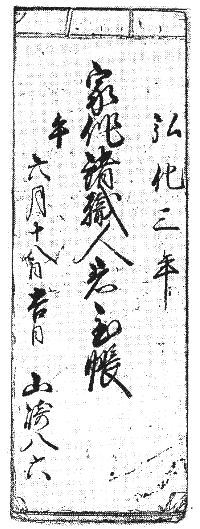 弘化三年
家作諸職人差引帳
午
六月十八日吉日
山﨑八六